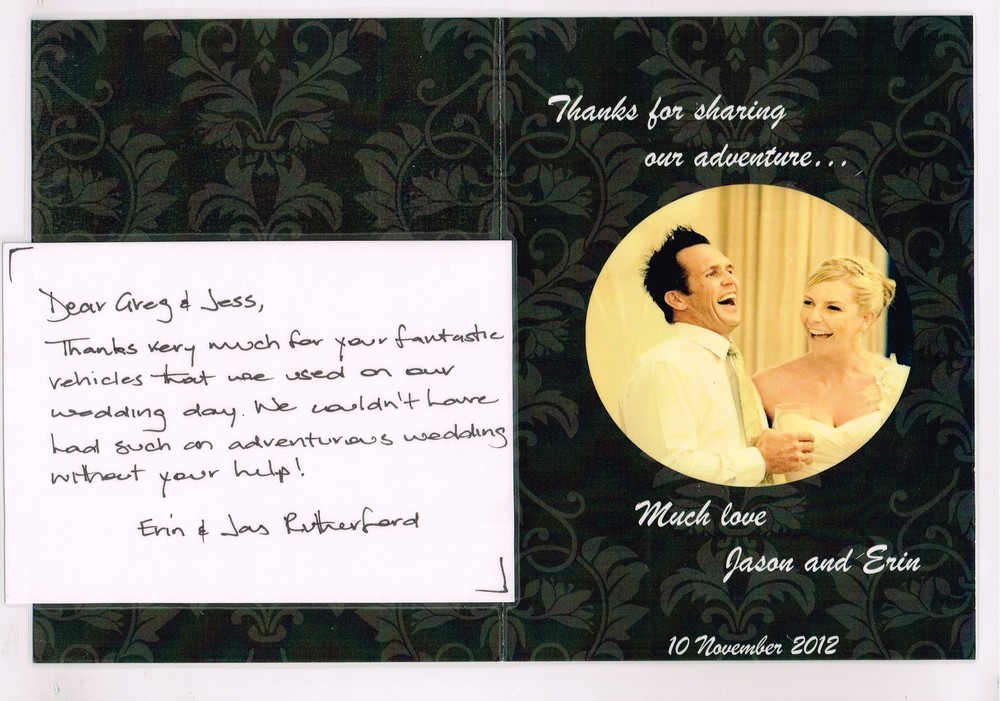 Dear Greg & Jess,
Thanks very much for your fantastic
vehicles that we used on our
wedding day. We couldn't have
had such an adventurous wedding
without your help!
Erin & Jas Rutherford
Thanks for sharing
our adventure...
Much love
Jason and Erin
10 November 2012